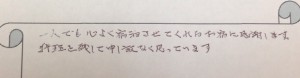 一人でも心よく宿泊させてくれたお宿に感謝します。
料理を残して申し訳なく思っています